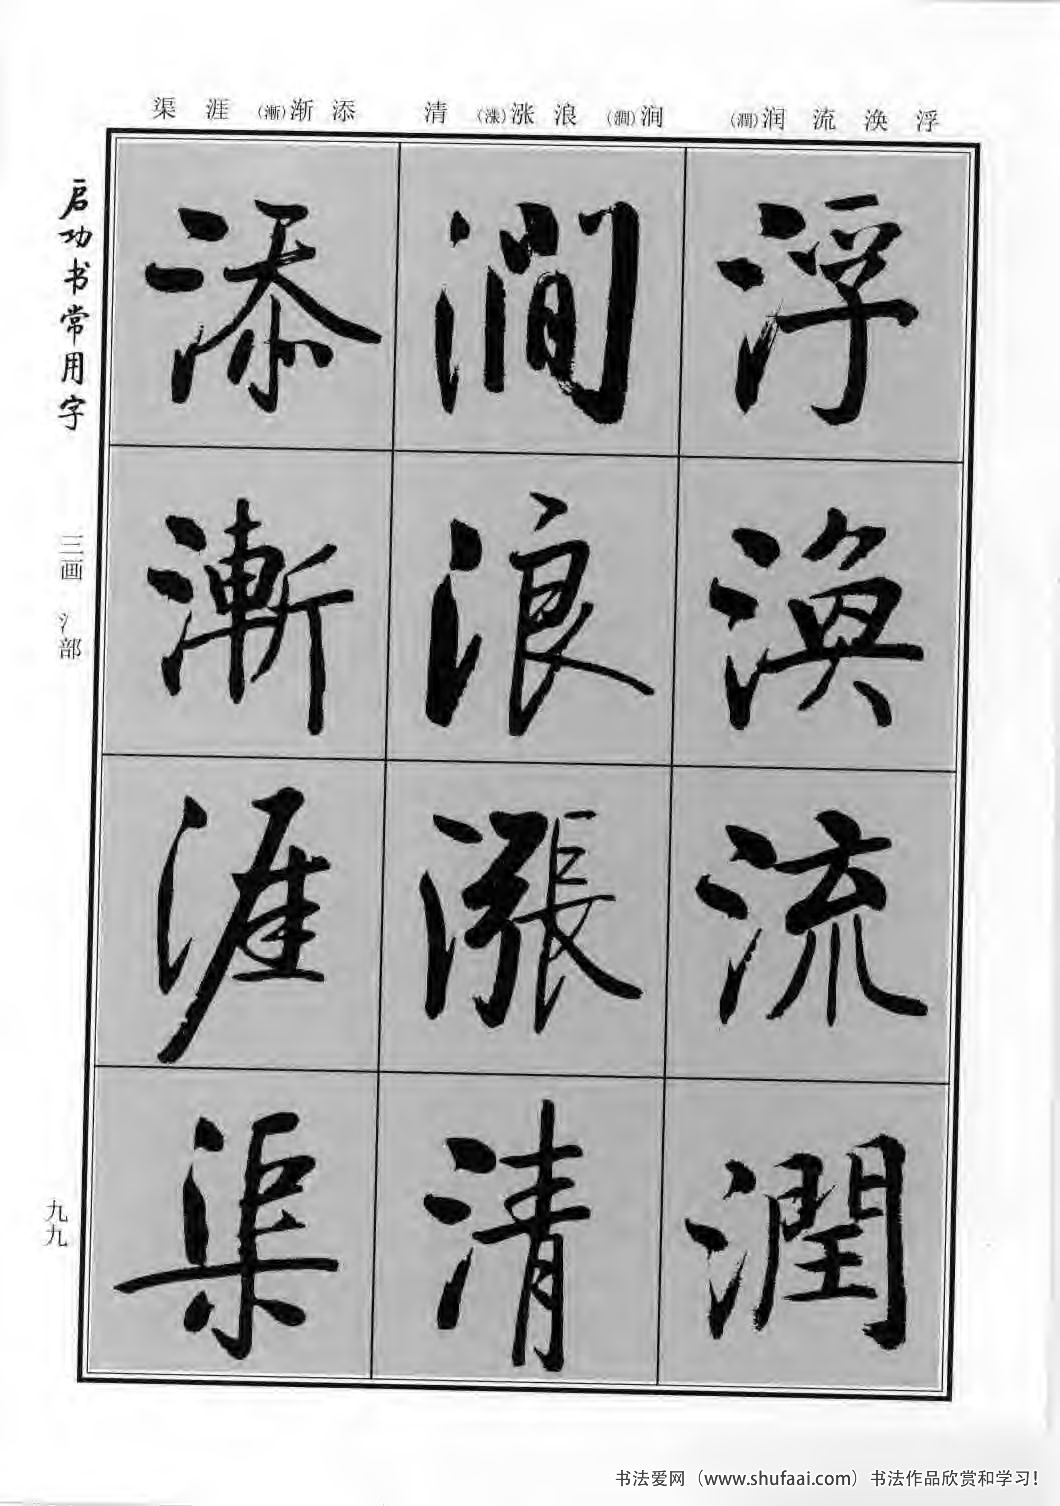 浮 涣 流 润(潤)
涧(澗) 浪 涨(漲) 清
添 渐(漸) 涯 渠
启功书常用字
三画 氵部
九九
浮
渙
流
潤
澗
浪
漲
清
添
漸
涯
渠
书法爱网（www.shufaai.com）书法作品欣赏和学习！